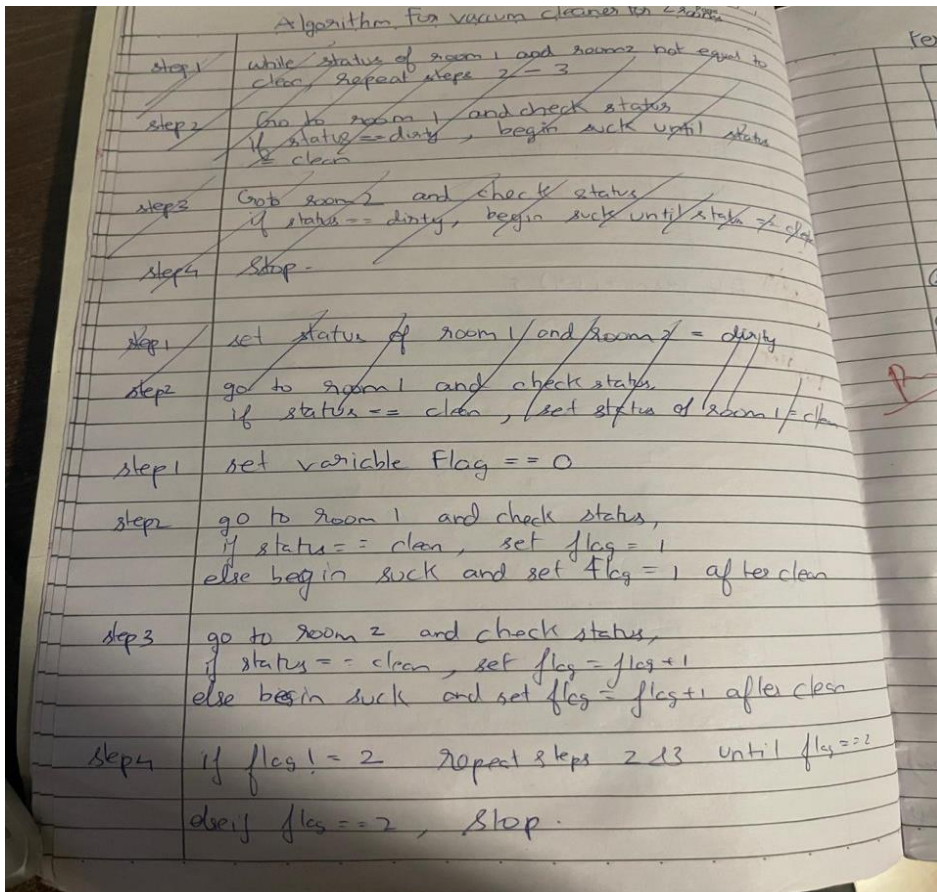 Algorithm for vaccum cleaner for 2 rooms
step 1 while status of room 1 and room 2 not equal to
clean, repeat steps 2 - 3
step 2 Go to room 1 and check status
if status == dirty, begin suck until status
= clean
step 3 Go to room 2 and check status
if status == dirty, begin suck until status = clean
step 4 Stop.
step 1 set status of room 1 and room 2 = dirity
step 2 go to room 1 and check status,
if status == clean, set status of room 1 = clean
step 1 set variable Flag == 0
step 2 go to room 1 and check status,
if status == clean, set flag = 1
else begin suck and set flag = 1 after clean
step 3 go to room 2 and check status,
if status == clean, set flag = flag + 1
else begin suck and set flag = flag + 1 after clean
step 4 if flag != 2 repeat steps 2 & 3 until flag == 2
else if flag == 2, Stop.